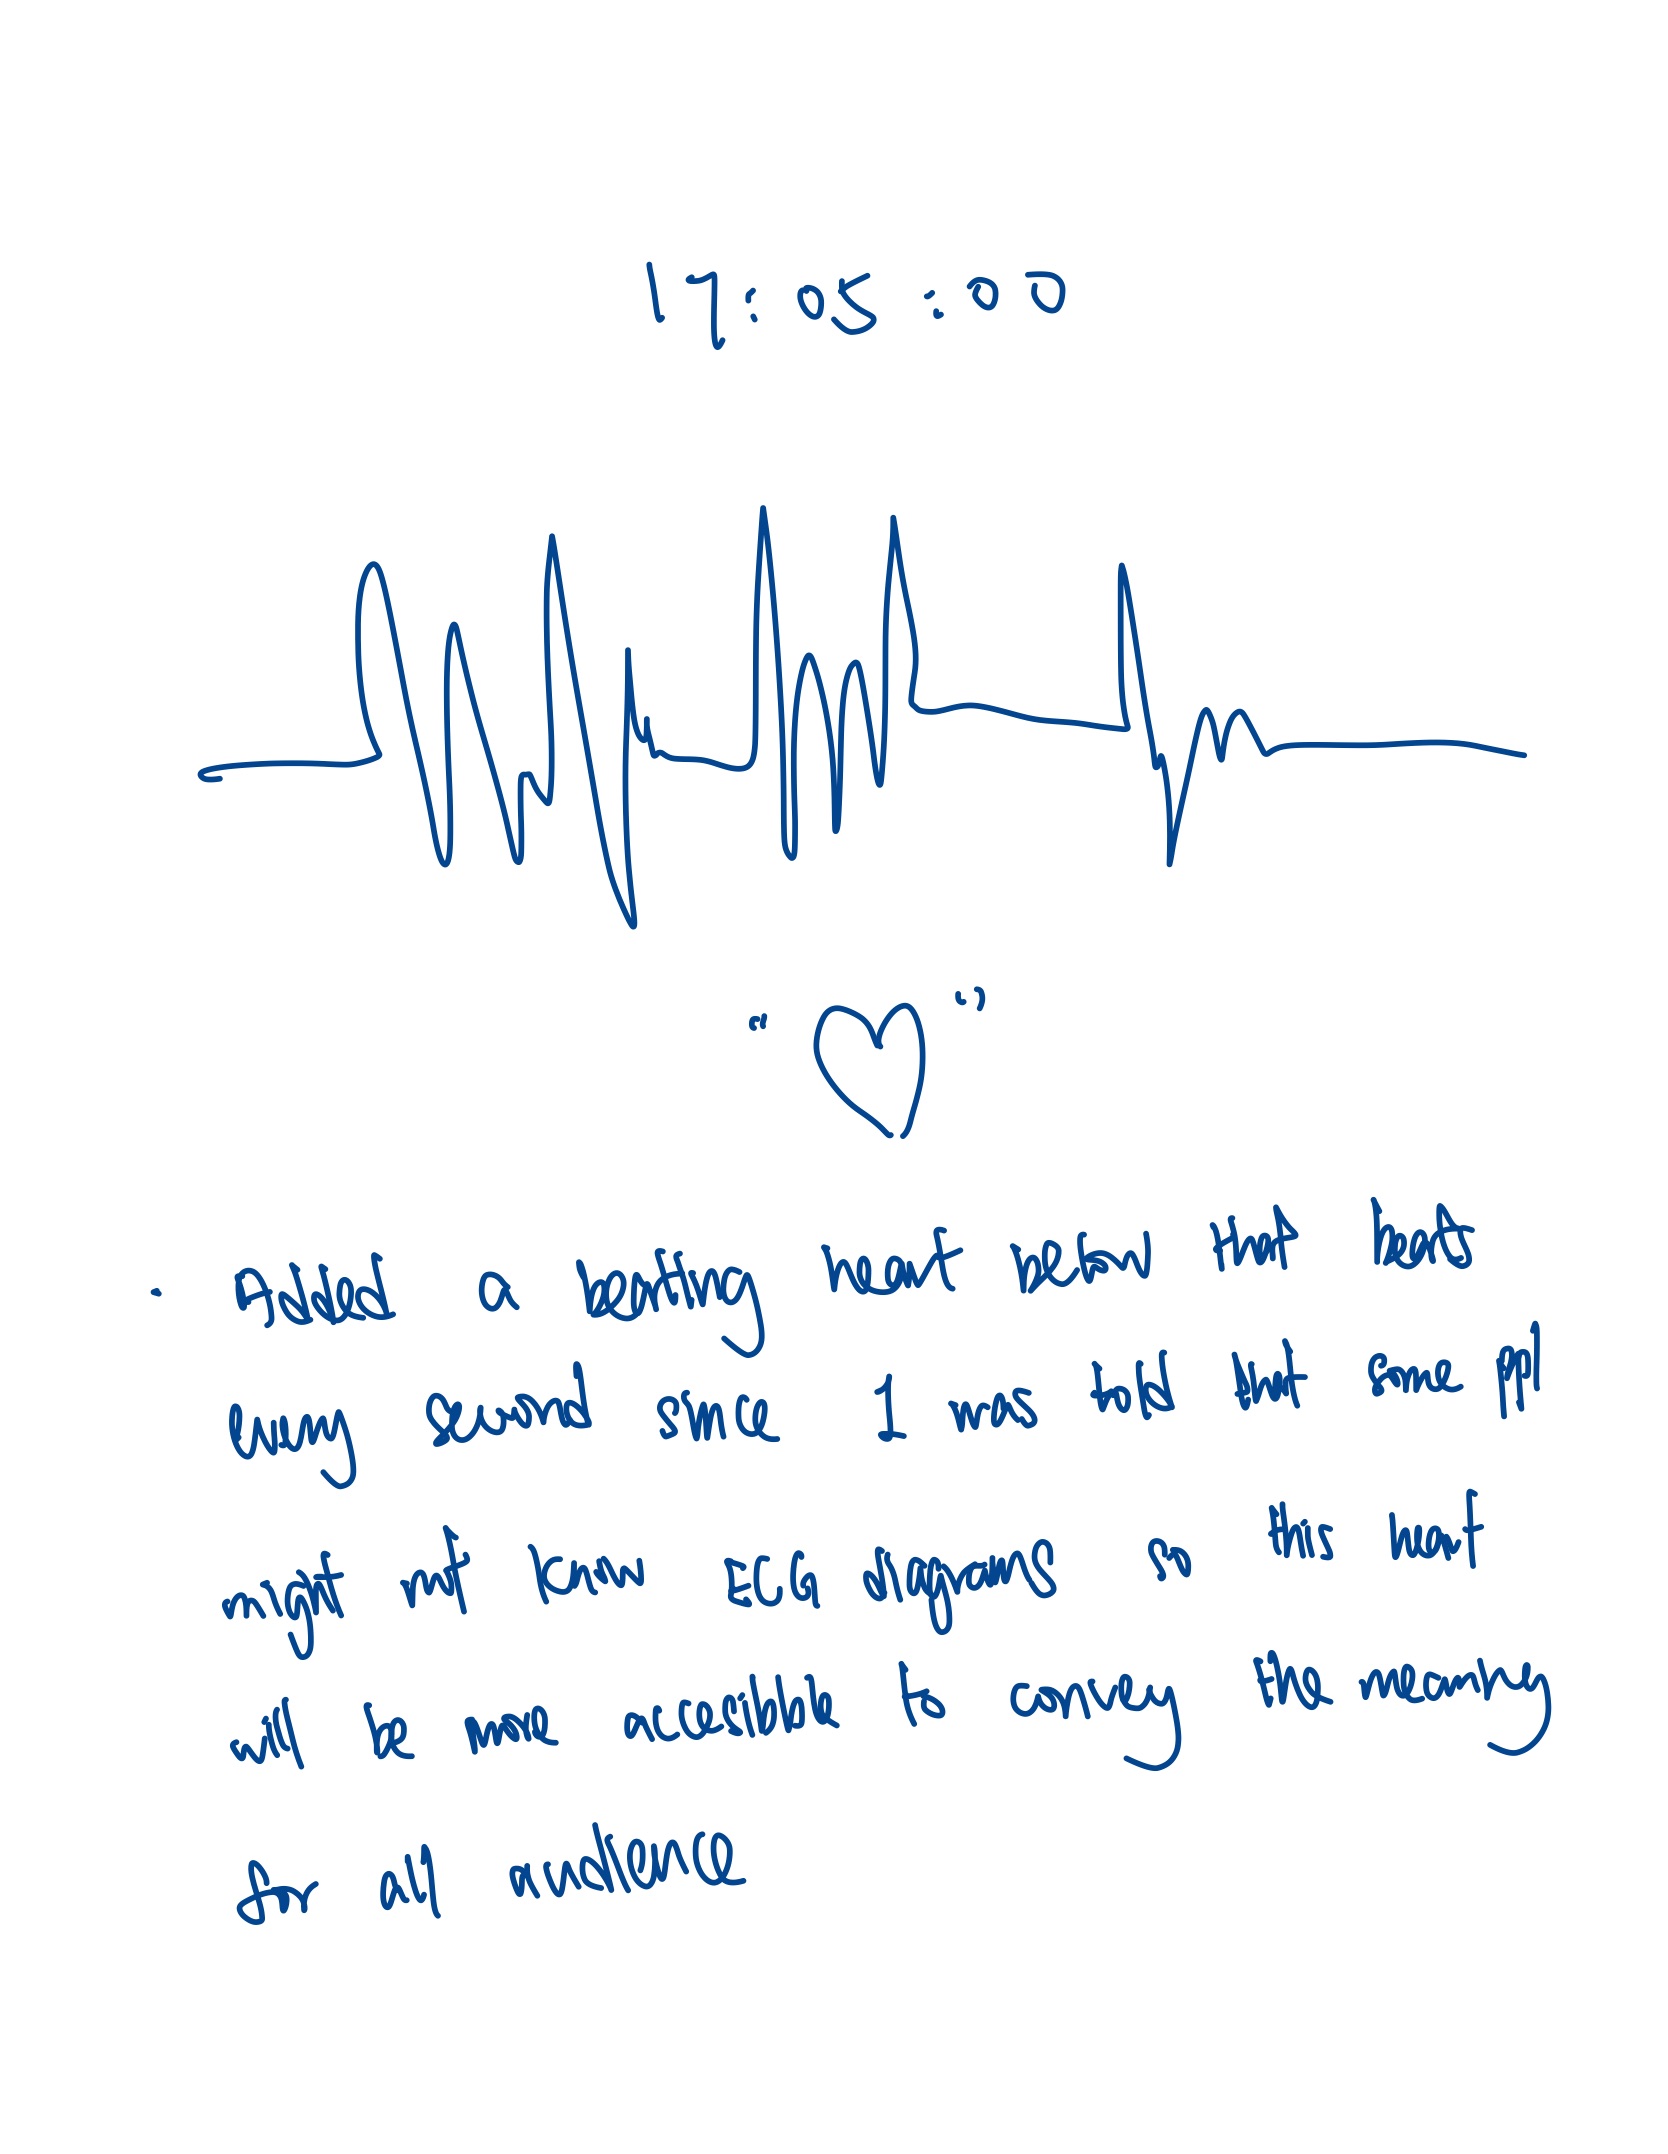 17:05:00
" ♡ "
· Added a beating heart below that beats
every second since I was told that some ppl
might not know ECG diagrams so this heart
will be more accesibble to convey the meaning
for all audience